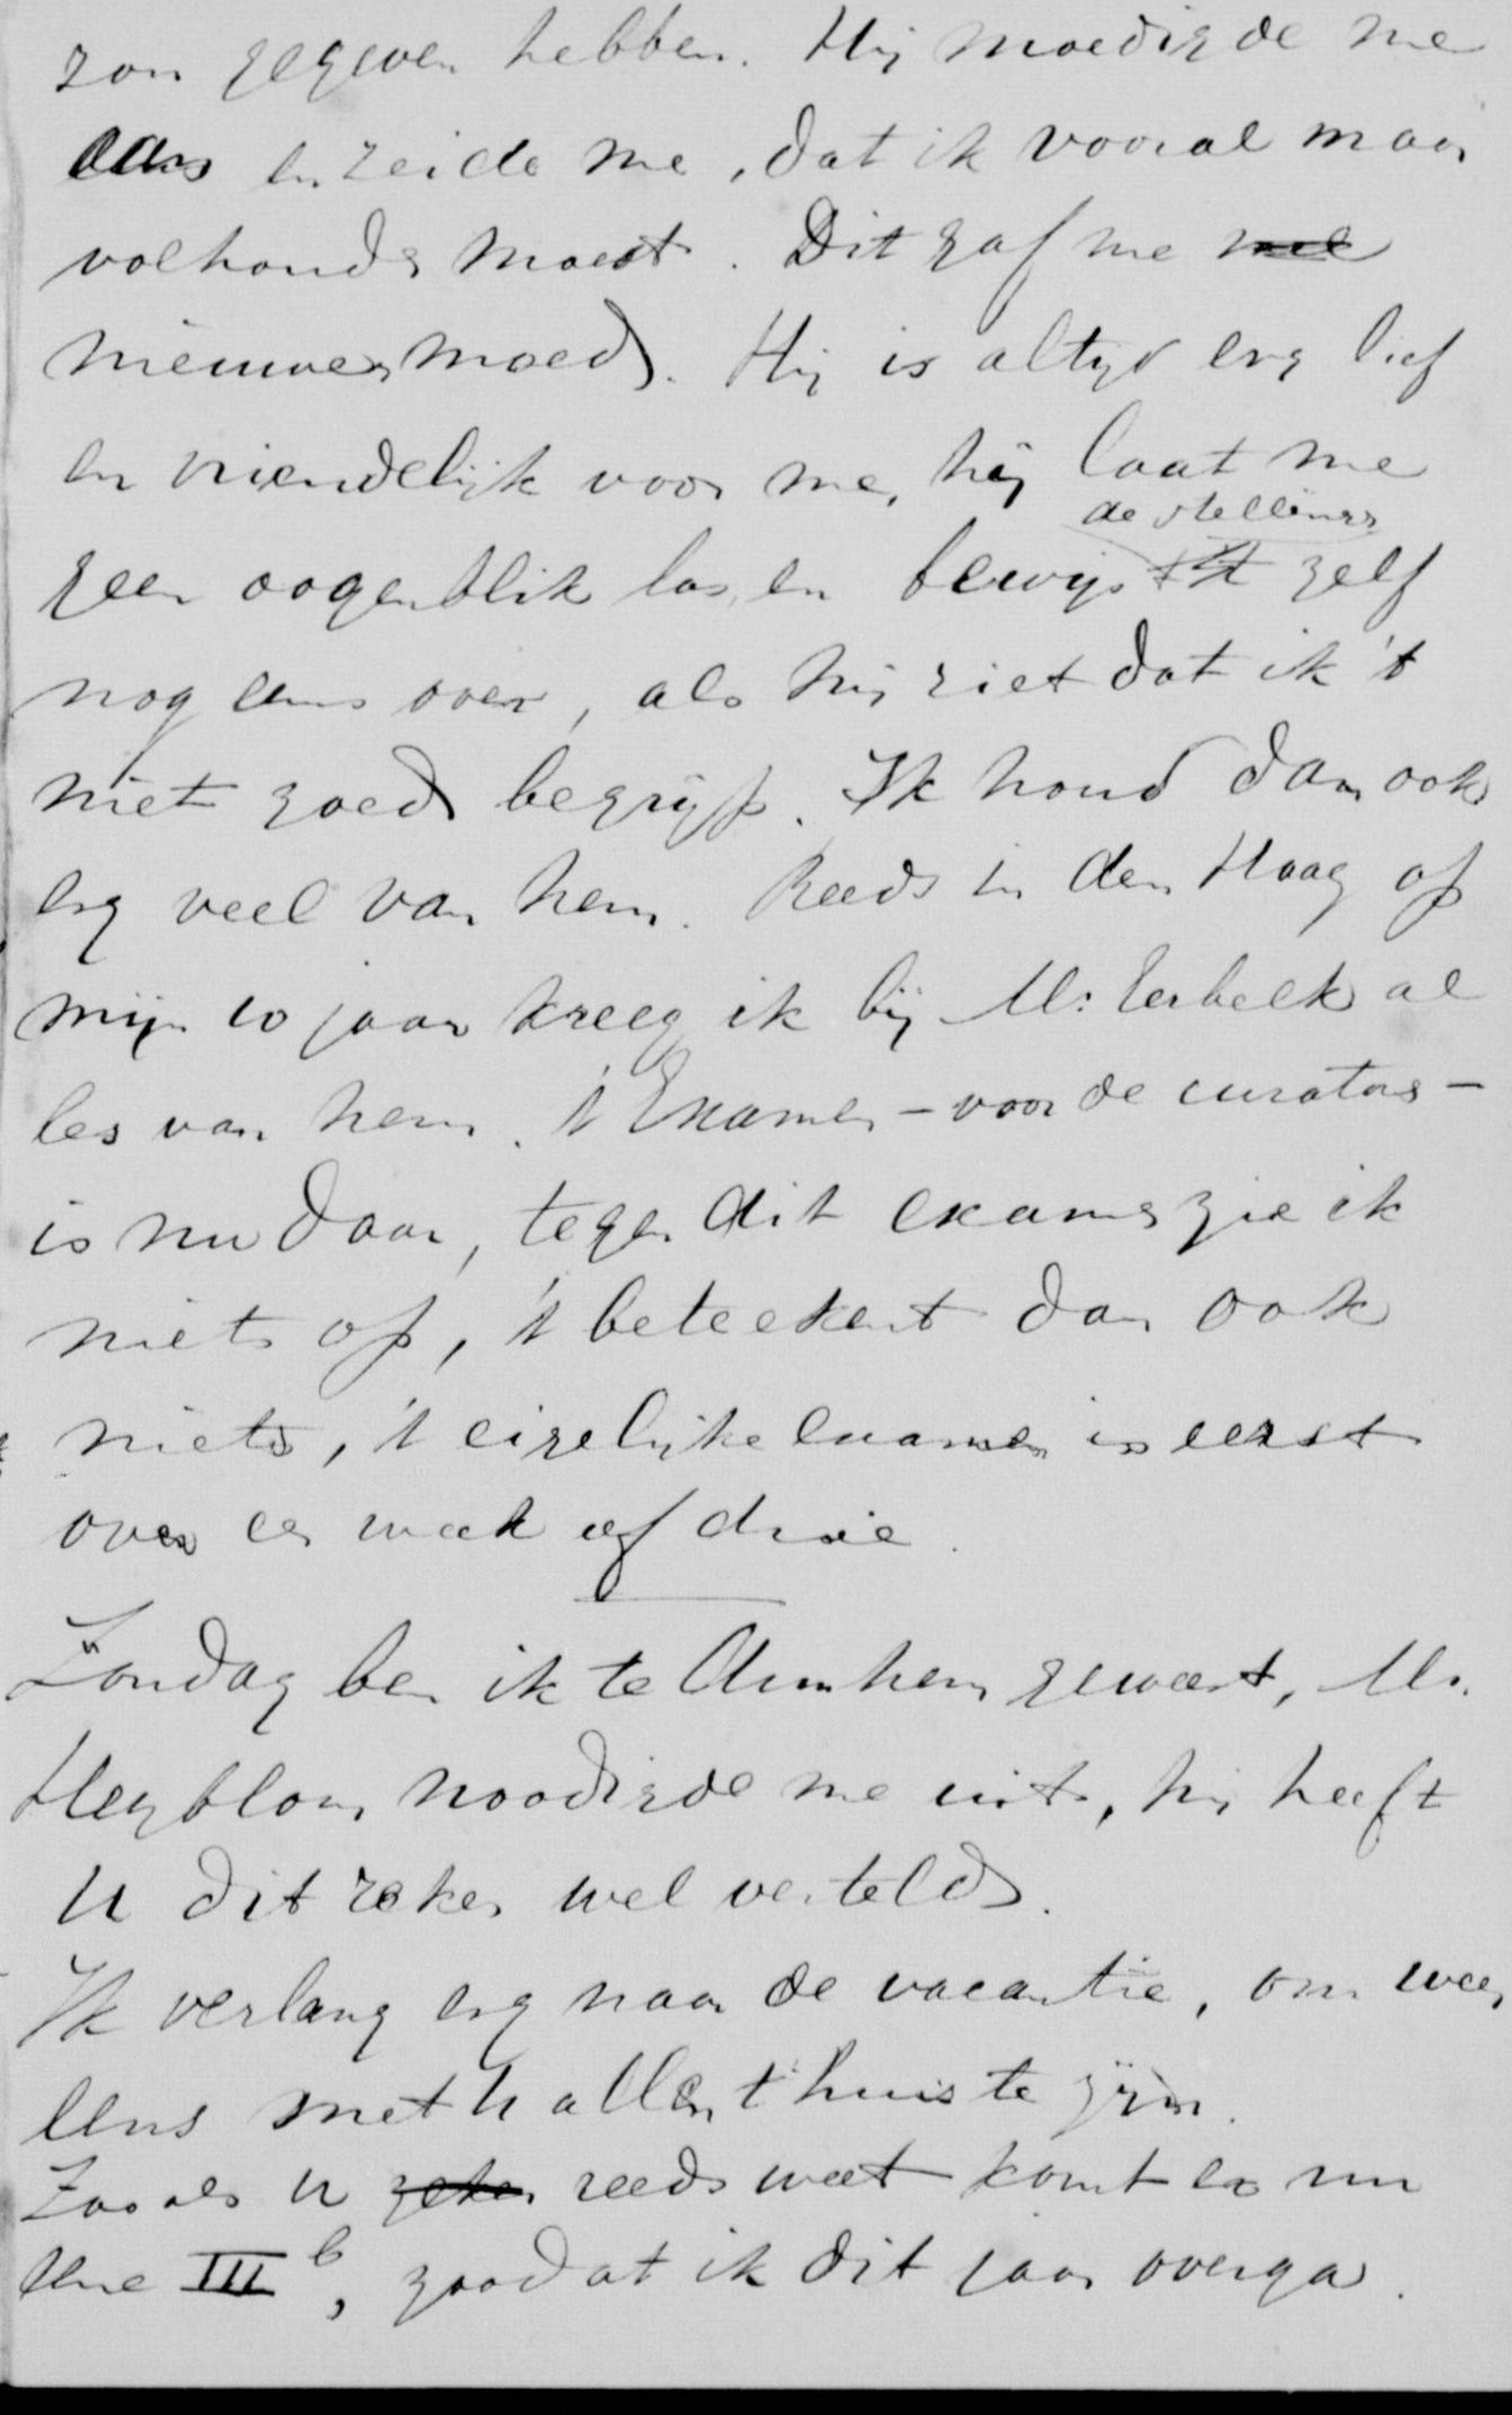 zou gegeven hebben. Hij moedigde me
aan en zeide me, dat ik vooral maar
volhouden moest. Dit gaf me
nieuwen moed. Hij is altijd erg lief
en vriendelijk voor me, hij laat me
de stellingen
geen oogenblik los, en bewijst zelf
nog eens over, als hij ziet dat ik 't
niet goed begrijp. Ik houd dan ook
erg veel van hem. Reeds in den Haag op
mijn 10 jaar kreeg ik bij Mr. Verbeek al
les van hem. 't Examen - voor de curators -
is nu daar, tegen dit examen zie ik
niets op, 't beteekent dan ook
niets, 't eigelijke examen is eerst
over een week of drie.
Zondag ben ik te Arnhem geweest, Mr.
Heyblom noodigde me uit, hij heeft
U dit zeker wel verteld.
Ik verlang erg naar de vacantie, om weer
eens met U allen t'huis te zijn.
Zooals U zeker reeds weet komt er nu
eene III b, zoodat ik dit jaar overga.